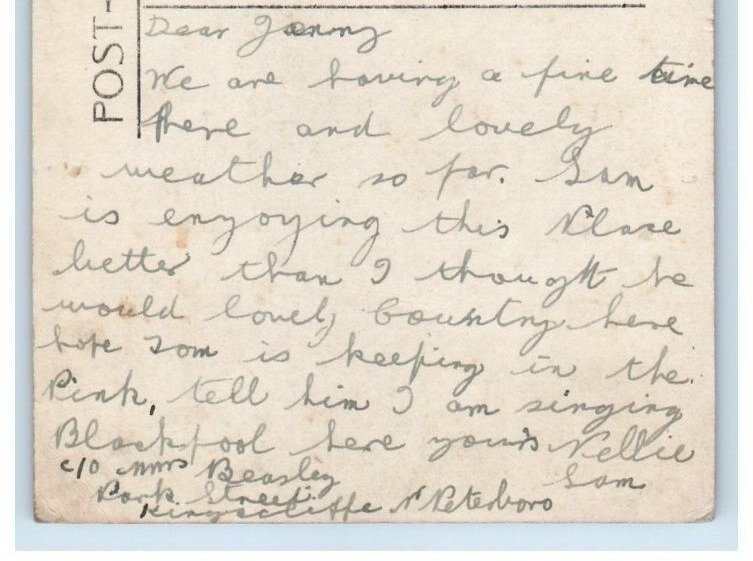 POST-
Dear Jenny
We are having a fine time
here and lovely
weather so far. Sam
is enyoying this Place
better than I thought he
would lovely Country here
hope Tom is keeping in the
Pink, tell him I am singing
Blackpool here yours Nellie
Sam
c/o Mrs Beasley
Park Street
Kingscliffe Nr Peterboro